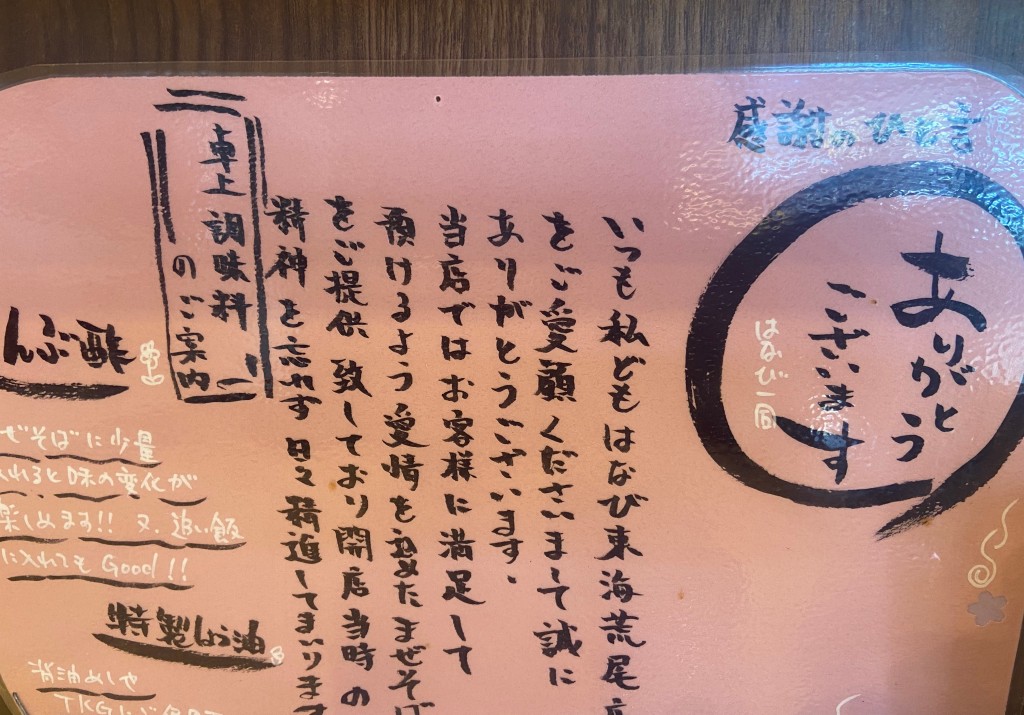 感謝のひと言
ありがとう
ございます
はなび一同
いつも私どもはなび東海荒尾店
をご愛顧くださいまして誠に
ありがとうございます、
当店ではお客様に満足して
預けるよう愛情を込めたまぜそば
をご提供致しており開店当時の
精神を忘れず日々精進してまいります
卓上調味料
のご案内
んぶ酢
ぜそばに少量
入れると味の変化が
楽しめます!!又、追い飯
に入れてもGood!!
特製しょう油
背油めしや